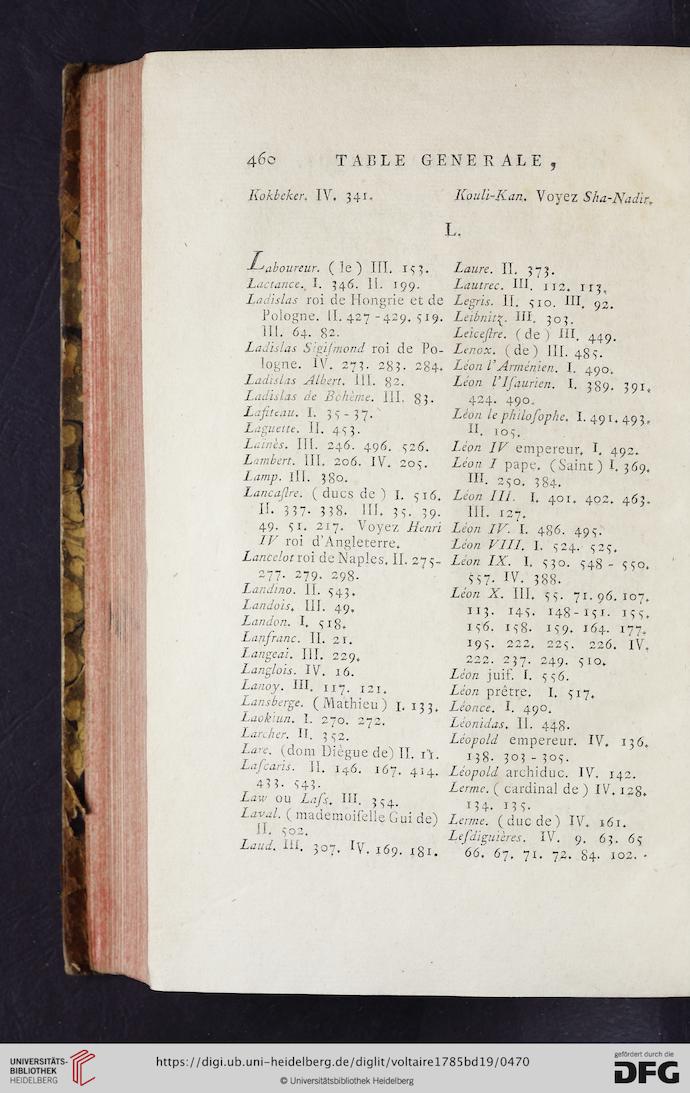 460 TABLE GENERALE,
Kokbeker. IV. 341. Kouli-Kan. Voyez Sha-Nadir.
L.
Laboureur. (le) III. 153.
Lactance. I. 346. II. 199.
Ladislas roi de Hongrie et de
Pologne. II. 427-429. 519.
III. 64. 82.
Ladislas Sigiſmond roi de Po-
logne. IV. 273. 283. 284.
Ladislas Albert. III. 82.
Ladislas de Bohème. III. 83.
Lafiteau. I. 35-37.
Laguette. II. 453.
Lainès. III. 246. 496. 526.
Lambert. III. 206. IV. 205.
Lamp. III. 380.
Lancaſtre. (ducs de) I. 516.
II. 337. 338. III. 35. 39.
49. 51. 217. Voyez Henri
IV roi d'Angleterre.
Lancelot roi de Naples. II. 275-
277. 279. 298.
Landino. II. 543.
Landois. III. 49.
Landon. I. 518.
Lanfranc. II. 21.
Langeai. III. 229.
Langlois. IV. 16.
Lanoy. III. 117. 121.
Lansberge. (Mathieu) I. 133.
Laokiun. I. 270. 272.
Larcher. II. 352.
Lare. (dom Diègue de) II. 11.
Laſcaris. II. 146. 167. 414.
433. 543.
Law ou Laſs. III. 354.
Laval. (mademoiſelle Gui de)
II. 502.
Laud. III. 307. IV. 169. 181.
Laure. II. 373.
Lautrec. III. 112. 113.
Legris. II. 510. III. 92.
Leibnitz. III. 303.
Leiceſtre. (de) III. 449.
Lenox. (de) III. 485.
Léon l'Arménien. I. 490.
Léon l'Iſaurien. I. 389. 391.
424. 490.
Léon le philoſophe. I. 491. 493.
II. 105.
Léon IV empereur. I. 492.
Léon I pape. (Saint) I. 369.
III. 250. 384.
Léon III. I. 401. 402. 463.
III. 127.
Léon IV. I. 486. 495.
Léon VIII. I. 524. 525.
Léon IX. I. 530. 548-550.
557. IV. 388.
Léon X. III. 55. 71. 96. 107.
113. 145. 148-151. 155.
156. 158. 159. 164. 177.
195. 222. 225. 226. IV.
222. 237. 249. 510.
Léon juif. I. 556.
Léon prêtre. I. 517.
Léonce. I. 490.
Léonidas. II. 448.
Léopold empereur. IV. 136.
138. 303-305.
Léopold archiduc. IV. 142.
Lerme. (cardinal de) IV. 128.
134. 135.
Lerme. (duc de) IV. 161.
Leſdiguières. IV. 9. 63. 65
66. 67. 71. 72. 84. 102.
UNIVERSITÄTS-
BIBLIOTHEK
HEIDELBERG
https://digi.ub.uni-heidelberg.de/diglit/voltaire1785bd19/0470
© Universitätsbibliothek Heidelberg
gefördert durch die
DFG